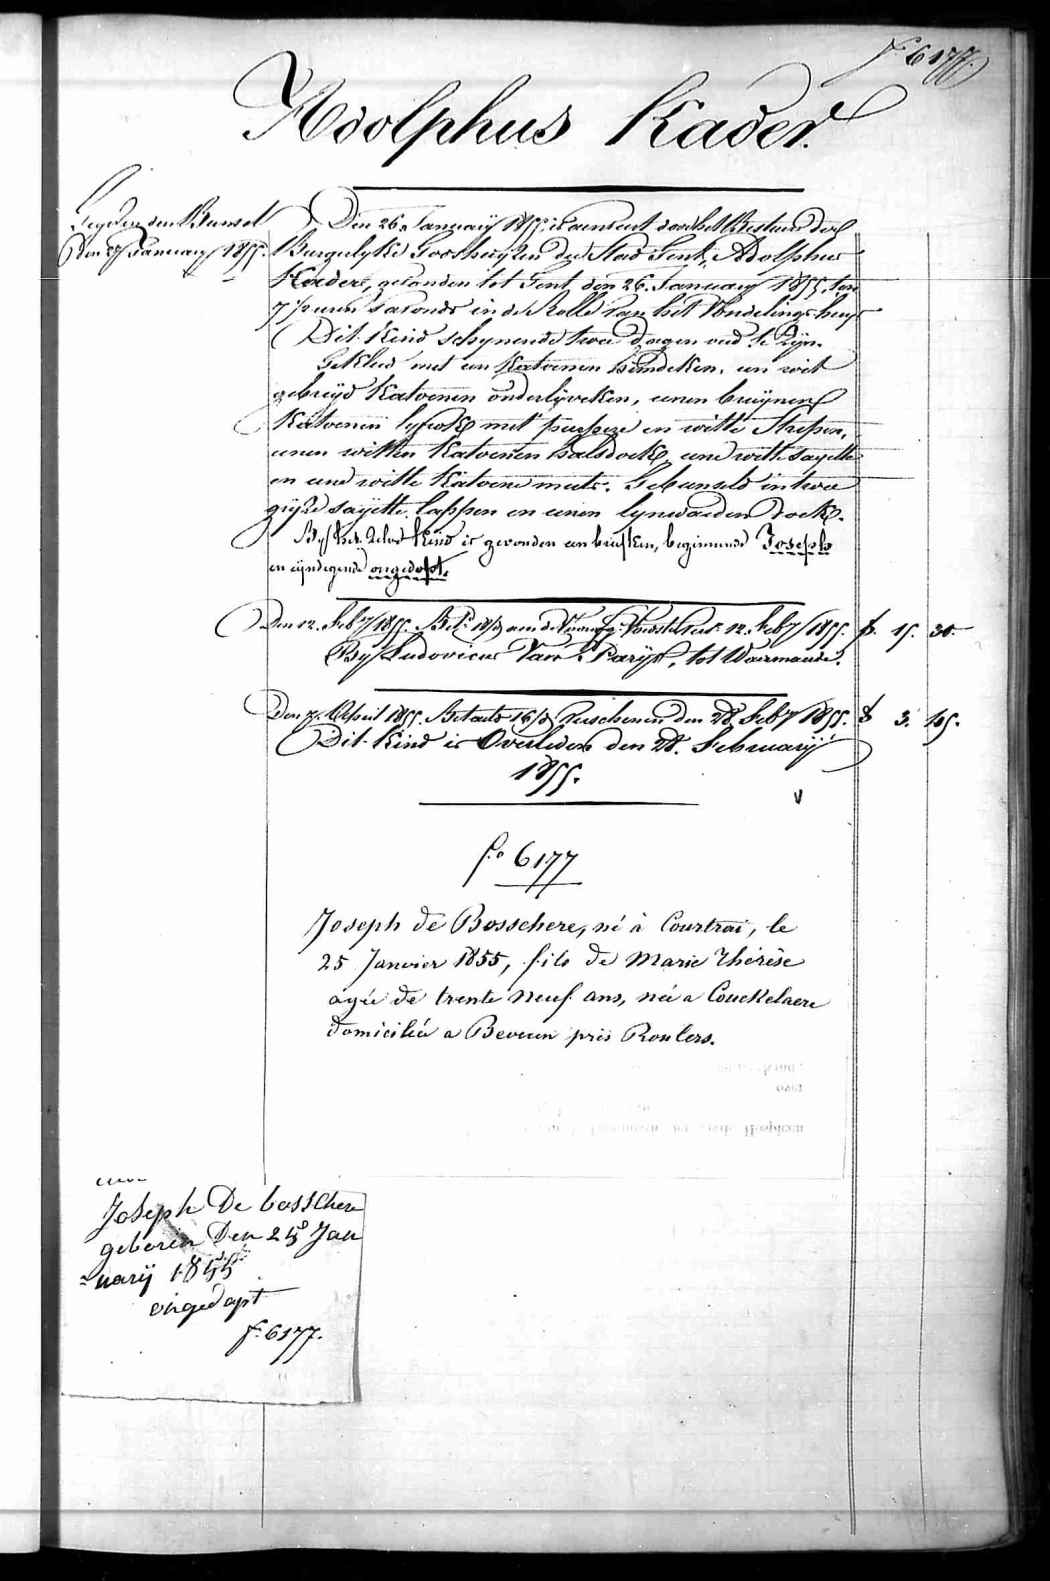 f.° 6177.
Adolphus Kader.
den 27 January 1855.
Den 26. January 1855. is aenveerd door het Bestuer der
Burgelyke Godshuyzen der Stad Gent, Adolphus
Kader, gevonden tot Gent, den 26. January 1855. ten
7 1/2 uren s'avonds in de Rolle van het Vondelingshuys
Dit Kind schynende twee dagen oud te zyn.
Gekleed met een Katoenen hemdeken, een wit
gebreyd Katoenen onderlyveken, eenen bruynen
Katoenen lyfrok met purpere en witte Strepen,
eenen witten Katoenen halsdoek, eene witte sayette
en eene witte Katoene muts. Gebunseld in twee
gryze sayette lappen en eenen lynwaeden doek.
By het zelve Kind is gevonden een briefken, beginnende Joseph
en eyndegende ongedopt.
Den 12. Feb.y 1855. 12. Feb.y 1855. 15. 30.
By Ludovicus Van Parys, tot Waermaerde.
Den 7. April 1855. Betaeld den 28 Feb.y 1855. 3. 105.
Dit Kind is Overleden den 28. February
1855.
f.° 6177
Joseph de Bosschere, né à Courtrai, le
25 Janvier 1855, fils de Marie Thérèse
agée de trente neuf ans, née a Couckelaere
domiciliée a Beveren près Roulers.
Joseph De bosschere
geboren Den 25 Jan
=uarÿ 1855
ongedopt
f.° 6177.